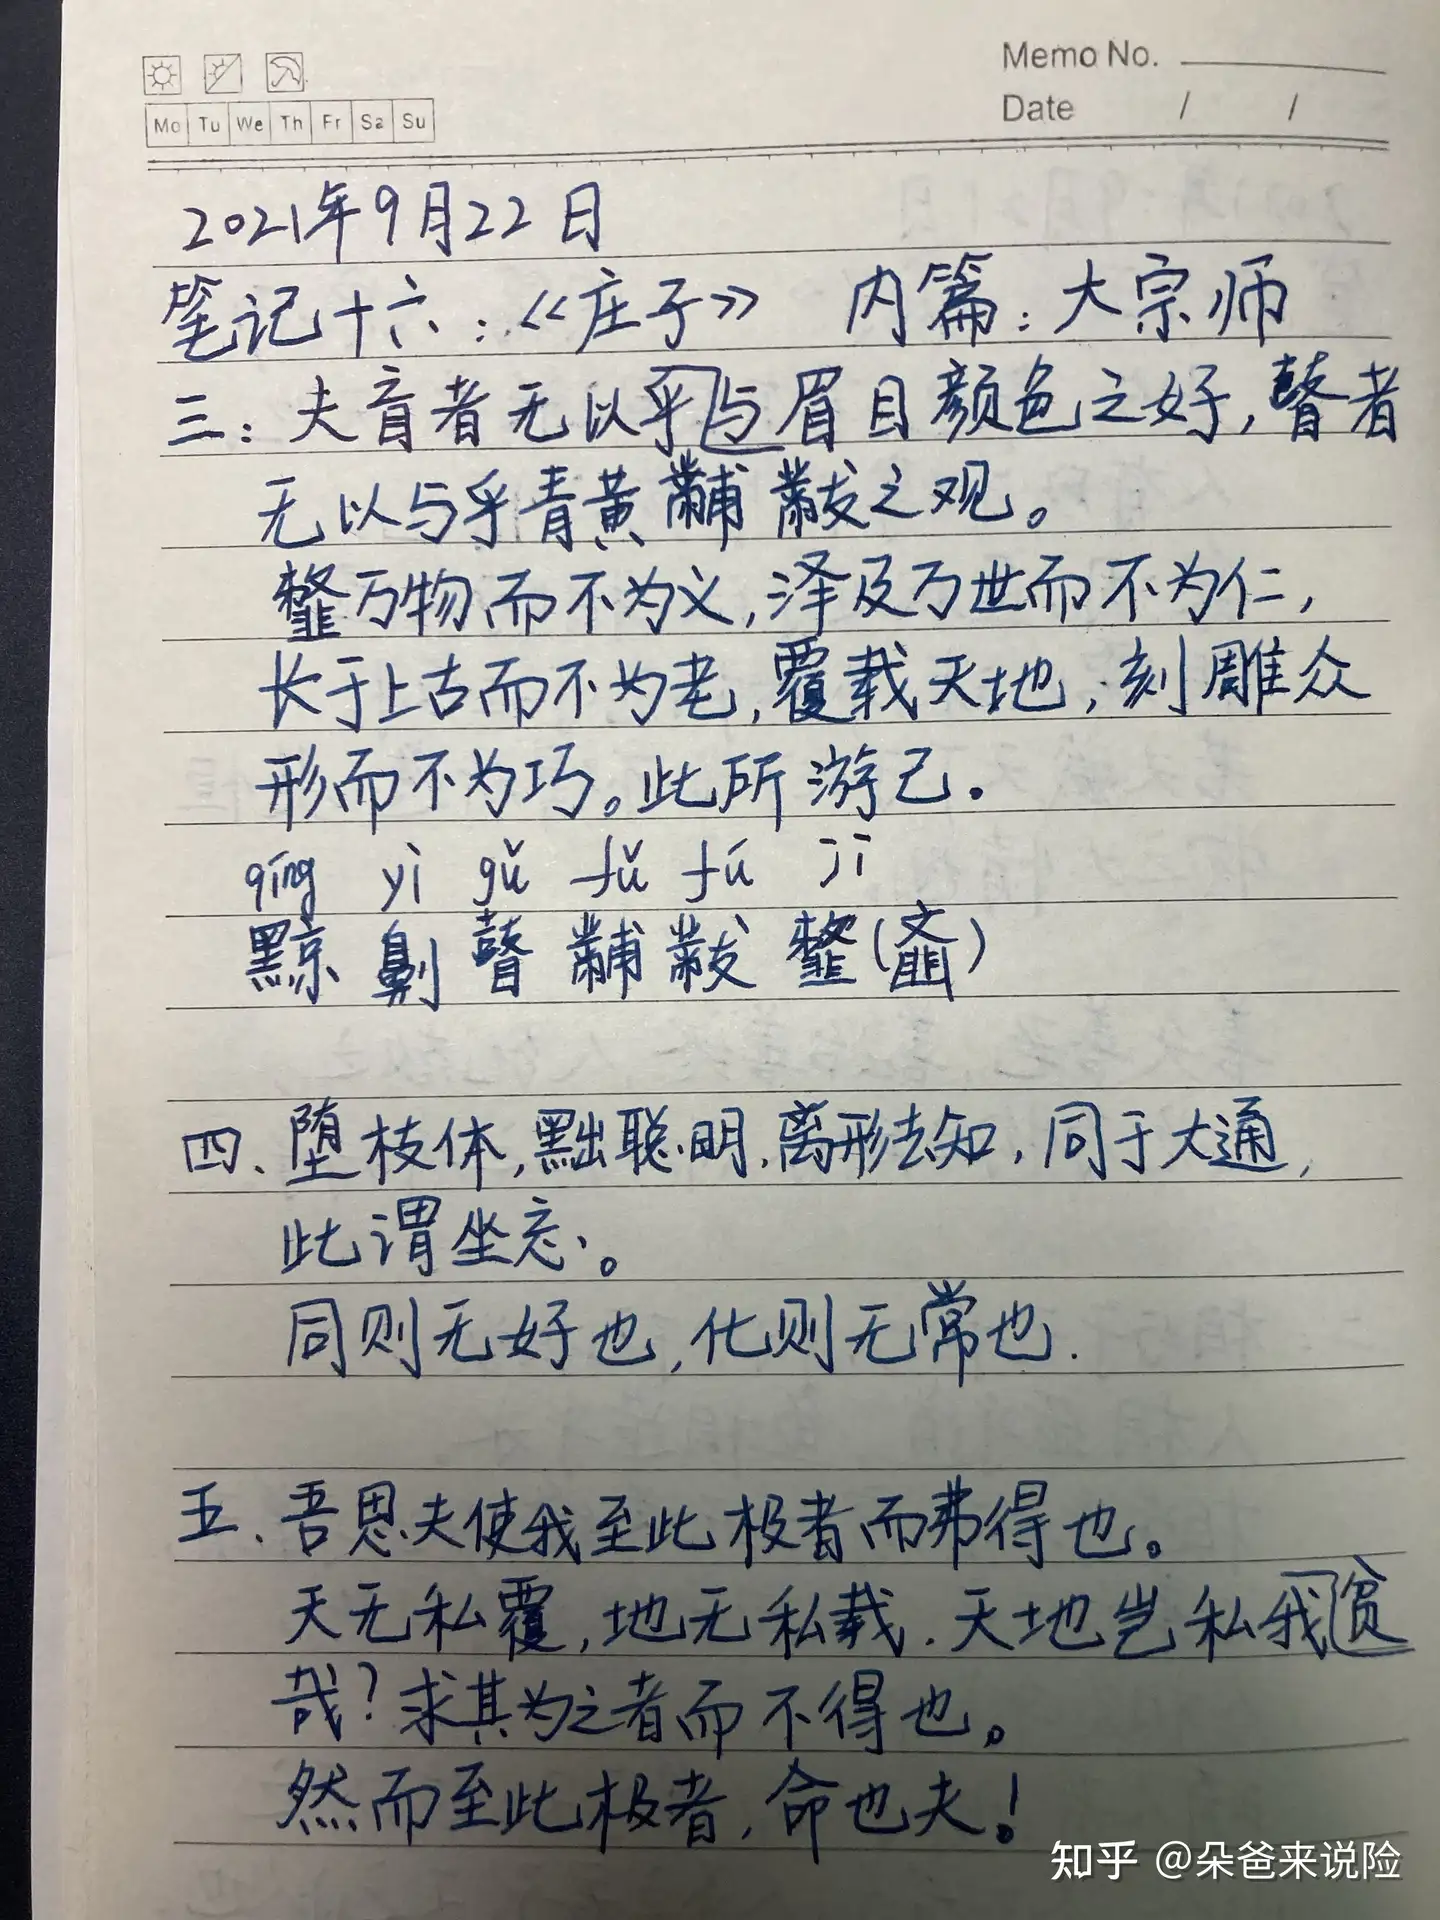 Memo No.
Date / /
Mo Tu We Th Fr Sa Su
2021年9月22日
笔记十六：《庄子》 内篇：大宗师
三：夫盲者无以乎与眉目颜色之好，瞽者
无以与乎青黄黼黻之观。
齏万物而不为义，泽及万世而不为仁，
长于上古而不为老，覆载天地，刻雕众
形而不为巧。此所游已。
qíng yì gǔ fǔ fú jī
黥 劓 瞽 黼 黻 齏(齑)
四、堕枝体，黜聪明，离形去知，同于大通，
此谓坐忘。
同则无好也，化则无常也.
五、吾思夫使我至此极者而弗得也。
天无私覆，地无私载，天地岂私我贫
哉？求其为之者而不得也。
然而至此极者，命也夫！
知乎 @朵爸来说险